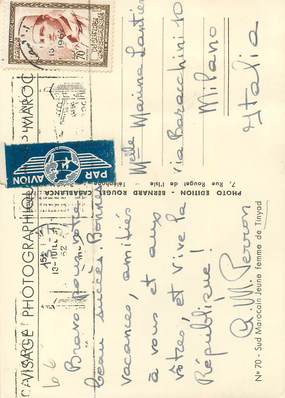 Bravo pour votre
beau succès. Bonnes
vacances, amitiés
à vous et aux
vôtres, et vive la
République !
A. M. Perron
Melle Marina Lantie
Via Baracchini 10
Milano
Italia
PAR
AVION
VISAGE PHOTOGRAPHIQUE
MAROC
70
PHOTO EDITION - BERNARD ROUGET - CASABLANCA
7, Rue Rouget de l'Isle - Téléphone
N° 70 - Sud Marocain Jeune femme de Tinyad